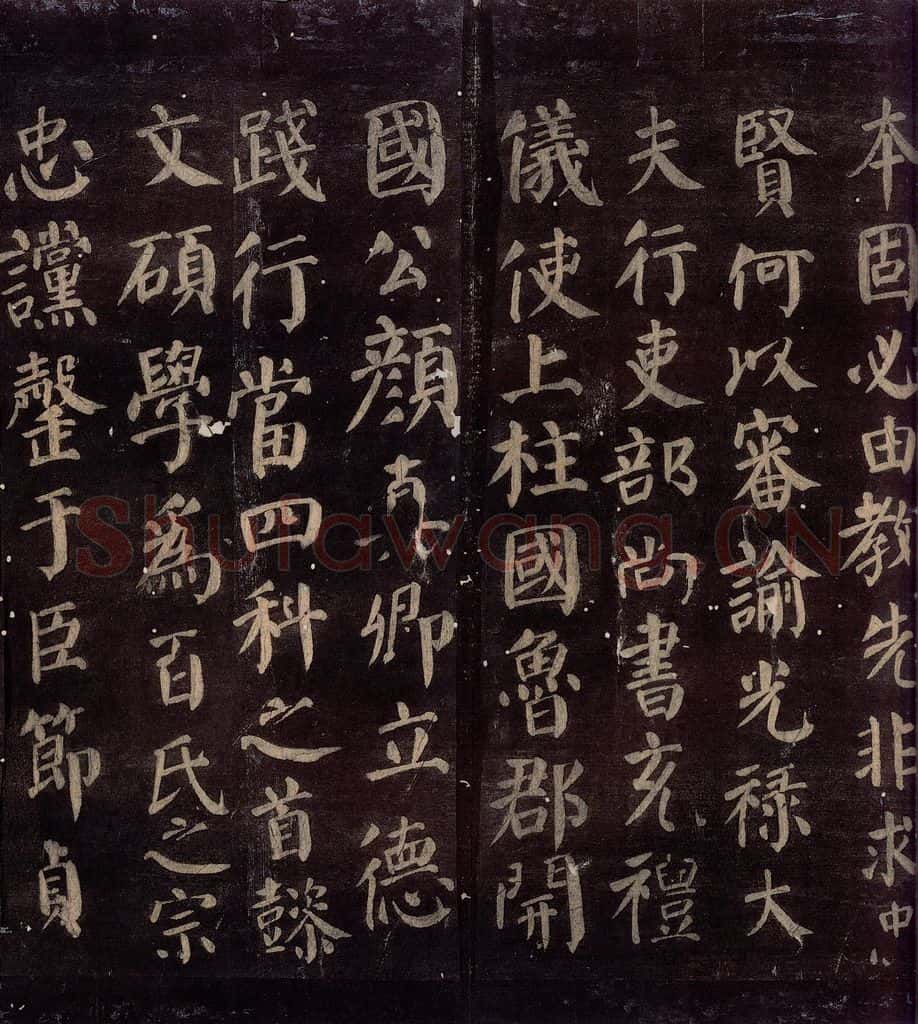 本固必由教先非求忠
賢何以審諭光禄大
夫行吏部尚書充禮
儀使上柱國魯郡開
國公顔真卿立德
踐行當四科之首懿
文碩學為百氏之宗
忠讜罄于臣節貞
Shufawang.CN